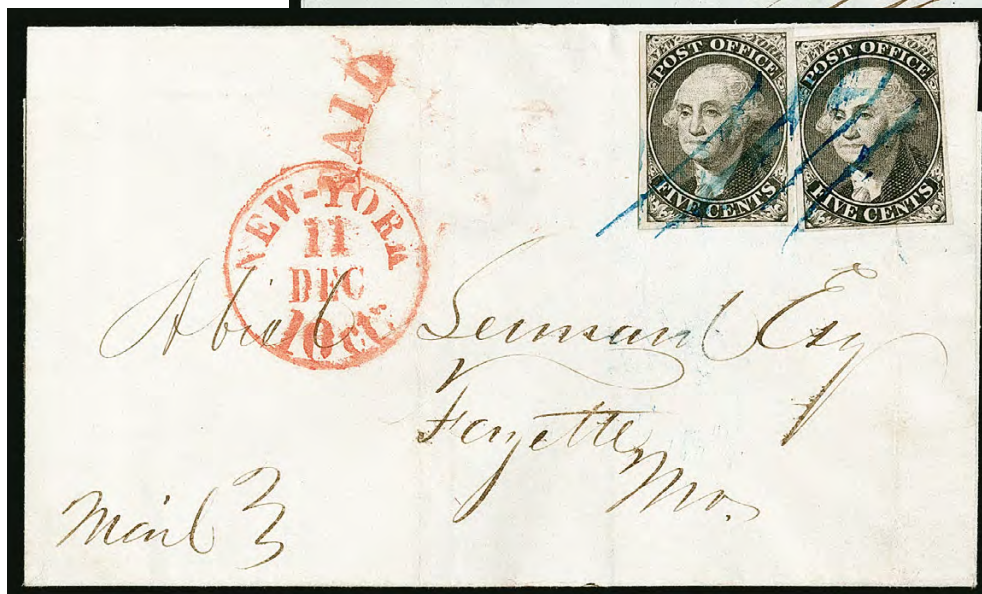 PAID
NEW-YORK
11
DEC
10cts
POST OFFICE
FIVE CENTS
POST OFFICE
FIVE CENTS
Esq
Fayette
Mo.
Mail